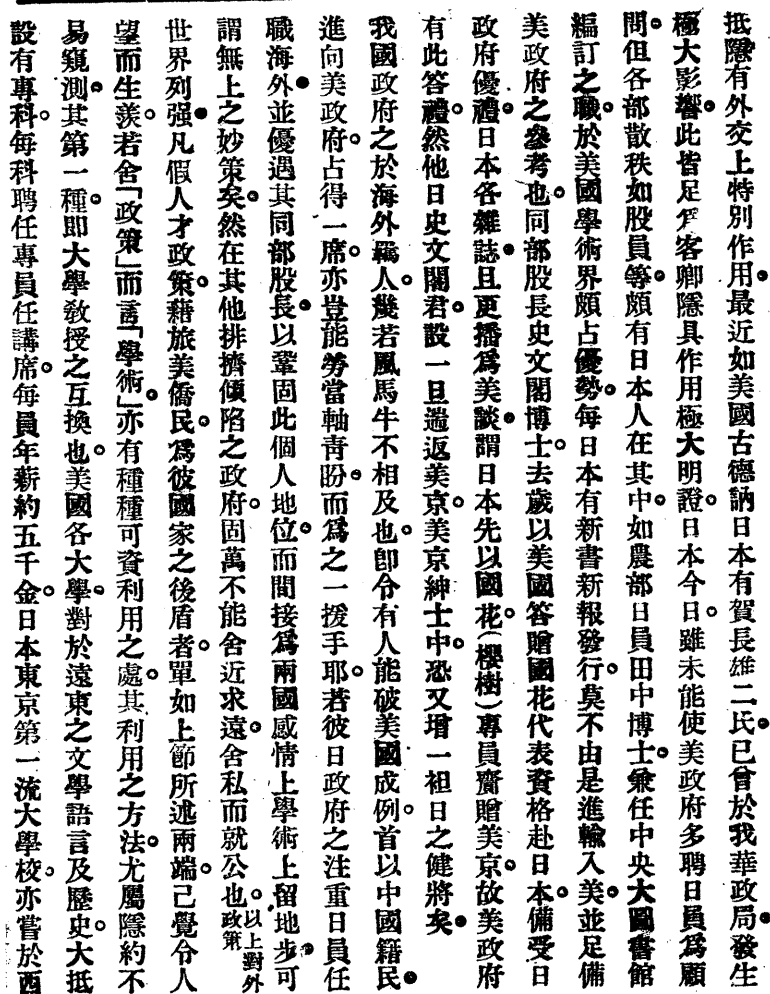 抵隱有外交上特別作用最近如美國古德訥日本有賀長雄二氏已曾於我華政局發生
極大影響此皆足爲客卿隱具作用極大明證日本今日雖未能使美政府多聘日員爲顧
問但各部散秩如股員等頗有日本人在其中如農部日員田中博士兼任中央大圖書館
編訂之職於美國學術界頗占優勢每日本有新書新報發行莫不由是進輸入美並足備
美政府之參考也同部股長史文閣博士去歲以美國答贈國花代表資格赴日本備受日
政府優禮日本各雜誌且更播爲美談謂日本先以國花(櫻樹)專員齎贈美京故美政府
有此答禮然他日史文閣君設一旦遄返美京美京紳士中恐又增一袒日之健將矣
我國政府之於海外羈人幾若風馬牛不相及也卽令有人能破美國成例首以中國籍民
進向美政府占得一席亦豈能勞當軸靑盼而爲之一援手耶若彼日政府之注重日員任
職海外並優遇其同部股長以鞏固此個人地位而間接爲兩國感情上學術上留地步可
謂無上之妙策矣然在其他排擠傾陷之政府固萬不能舍近求遠舍私而就公也以上對外政策
世界列强凡假人才政策藉旅美僑民爲彼國家之後盾者單如上節所述兩端己覺令人
望而生羨若舍「政策」而言「學術」亦有種種可資利用之處其利用之方法尤屬隱約不
易窺測其第一種卽大學敎授之互換也美國各大學對於遠東之文學語言及歷史大抵
設有專科每科聘任專員任講席每員年薪約五千金日本東京第一流大學校亦嘗於西